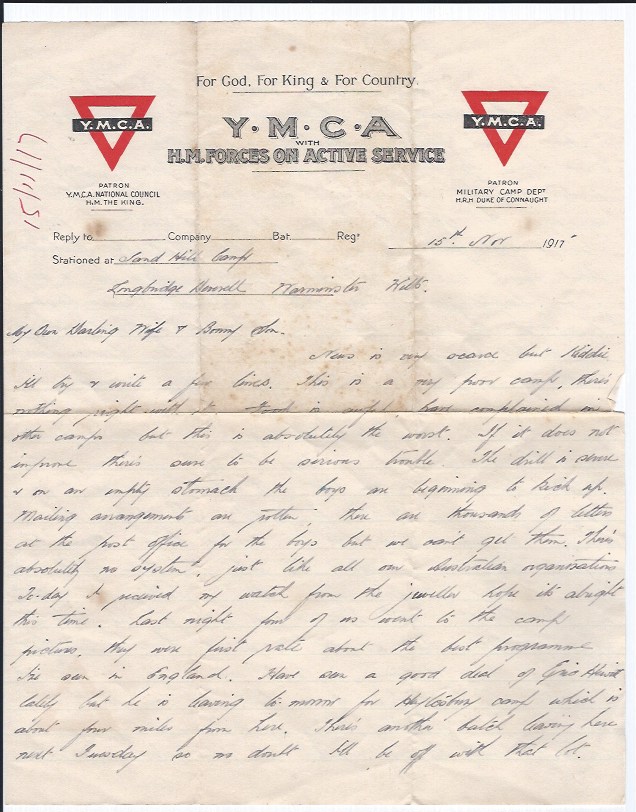 For God, For King & For Country.
Y.M.C.A.
Y·M·C·A
WITH
H.M. FORCES ON ACTIVE SERVICE
Y.M.C.A.
PATRON
Y.M.C.A. NATIONAL COUNCIL
H.M. THE KING.
PATRON
MILITARY CAMP DEPT
H.R.H DUKE OF CONNAUGHT
15/11/17
Reply to Company Bat. Regt
15th Nov 1917
Stationed at Sand Hill Camp
Longbridge Deverell Warminster Wilts.
My Own Darling Wife & Bonny Son.
News is very scarce but Kiddie
Ill try & write a few lines. This is a very poor camp, there's
nothing right with it. Food is have complained in
other camps but this is absolutely the worst. If it does not
improve there's sure to be serious trouble. The drill is severe
& on an empty stomach the boys are beginning to kick up.
Mailing arrangements are rotten, there are thousands of letters
at the post office for the boys but we cant get them. There's
absolutely no system, just like all our Australian organisations
To-day I received my watch from the jeweller hope its alright
this time. Last night four of us went to the camp
pictures, they were first rate about the best programme
I've seen in England. Have seen a good deal of
lately but he is leaving to-morrow for camp which is
about four miles from here. There's another batch leaving here
next Tuesday so no doubt Ill be off with that lot.